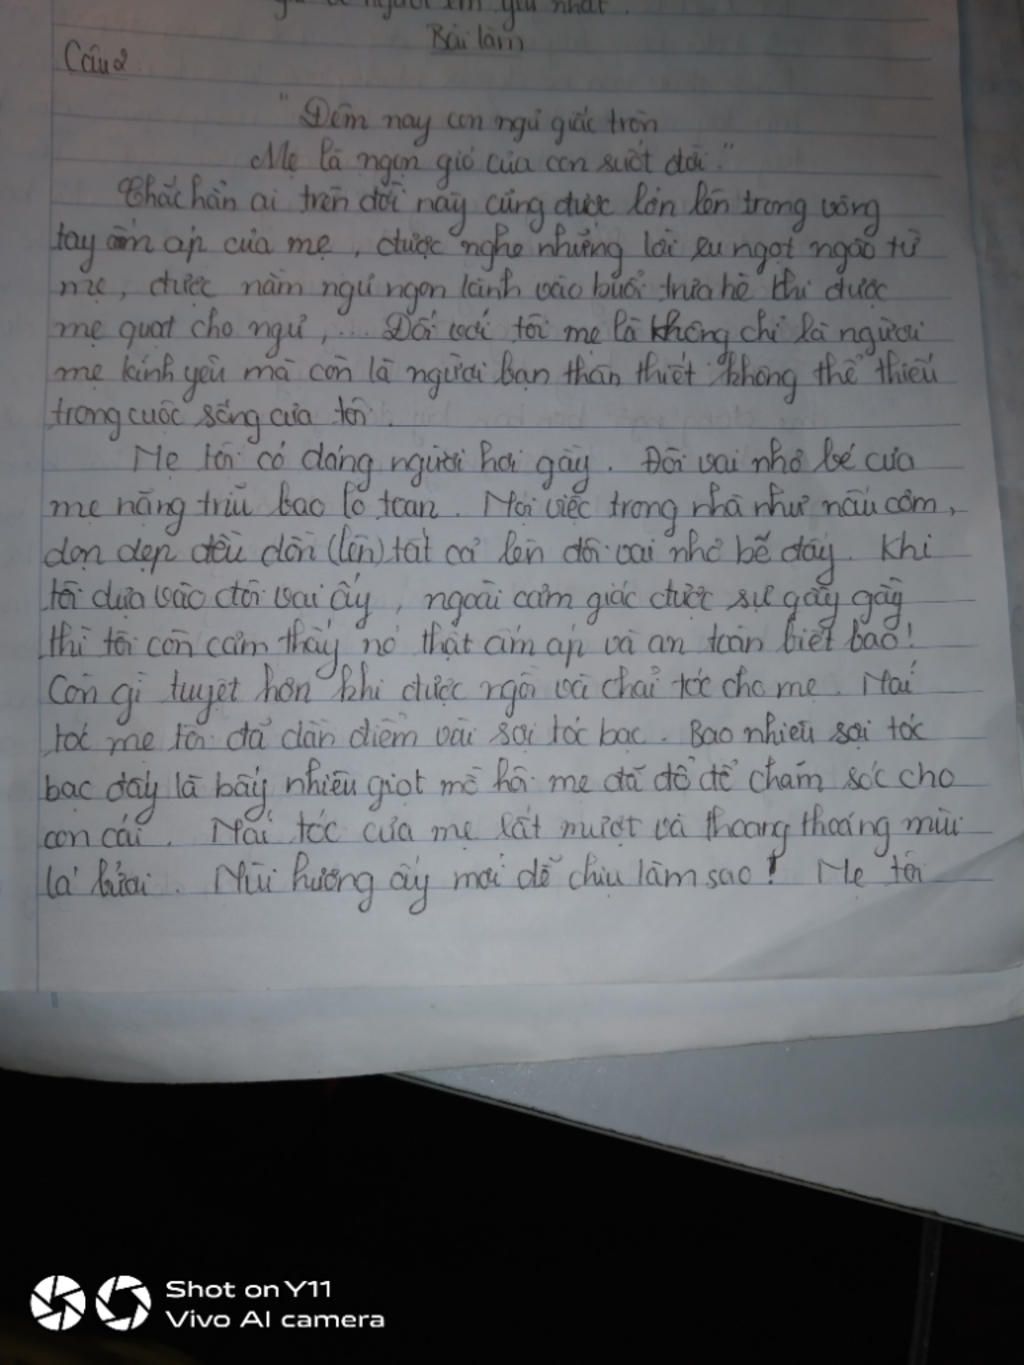 người em yêu nhất.
Bài làm
Câu 2
"Đêm nay con ngủ giấc tròn
Mẹ là ngọn gió của con suốt đời."
Chắc hẳn ai trên đời này cũng được lớn lên trong vòng
tay ấm áp của mẹ, được nghe những lời ru ngọt ngào từ
mẹ, được nằm ngủ ngon lành vào buổi trưa hè khi được
mẹ quạt cho ngủ,... Đối với tôi mẹ là không chỉ là người
mẹ kính yêu mà còn là người bạn thân thiết không thể thiếu
trong cuộc sống của tôi.
Mẹ tôi có dáng người hơi gầy. Đôi vai nhỏ bé của
mẹ nặng trĩu bao lo toan. Mọi việc trong nhà như nấu cơm,
dọn dẹp đều dồn (lên) tất cả lên đôi vai nhỏ bé đấy. Khi
tôi dựa vào đôi vai ấy, ngoài cảm giác được sự gầy gầy
thì tôi còn cảm thấy nó thật ấm áp và an toàn biết bao!
Còn gì tuyệt hơn khi được ngồi và chải tóc cho mẹ. Mái
tóc mẹ tôi đã dần điểm vài sợi tóc bạc. Bao nhiêu sợi tóc
bạc đấy là bấy nhiêu giọt mồ hôi mẹ đã đổ để chăm sóc cho
con cái. Mái tóc của mẹ rất mượt và thoang thoáng mùi
lá bưởi. Mùi hương ấy mới dễ chịu làm sao! Mẹ tôi
Shot on Y11
Vivo AI camera